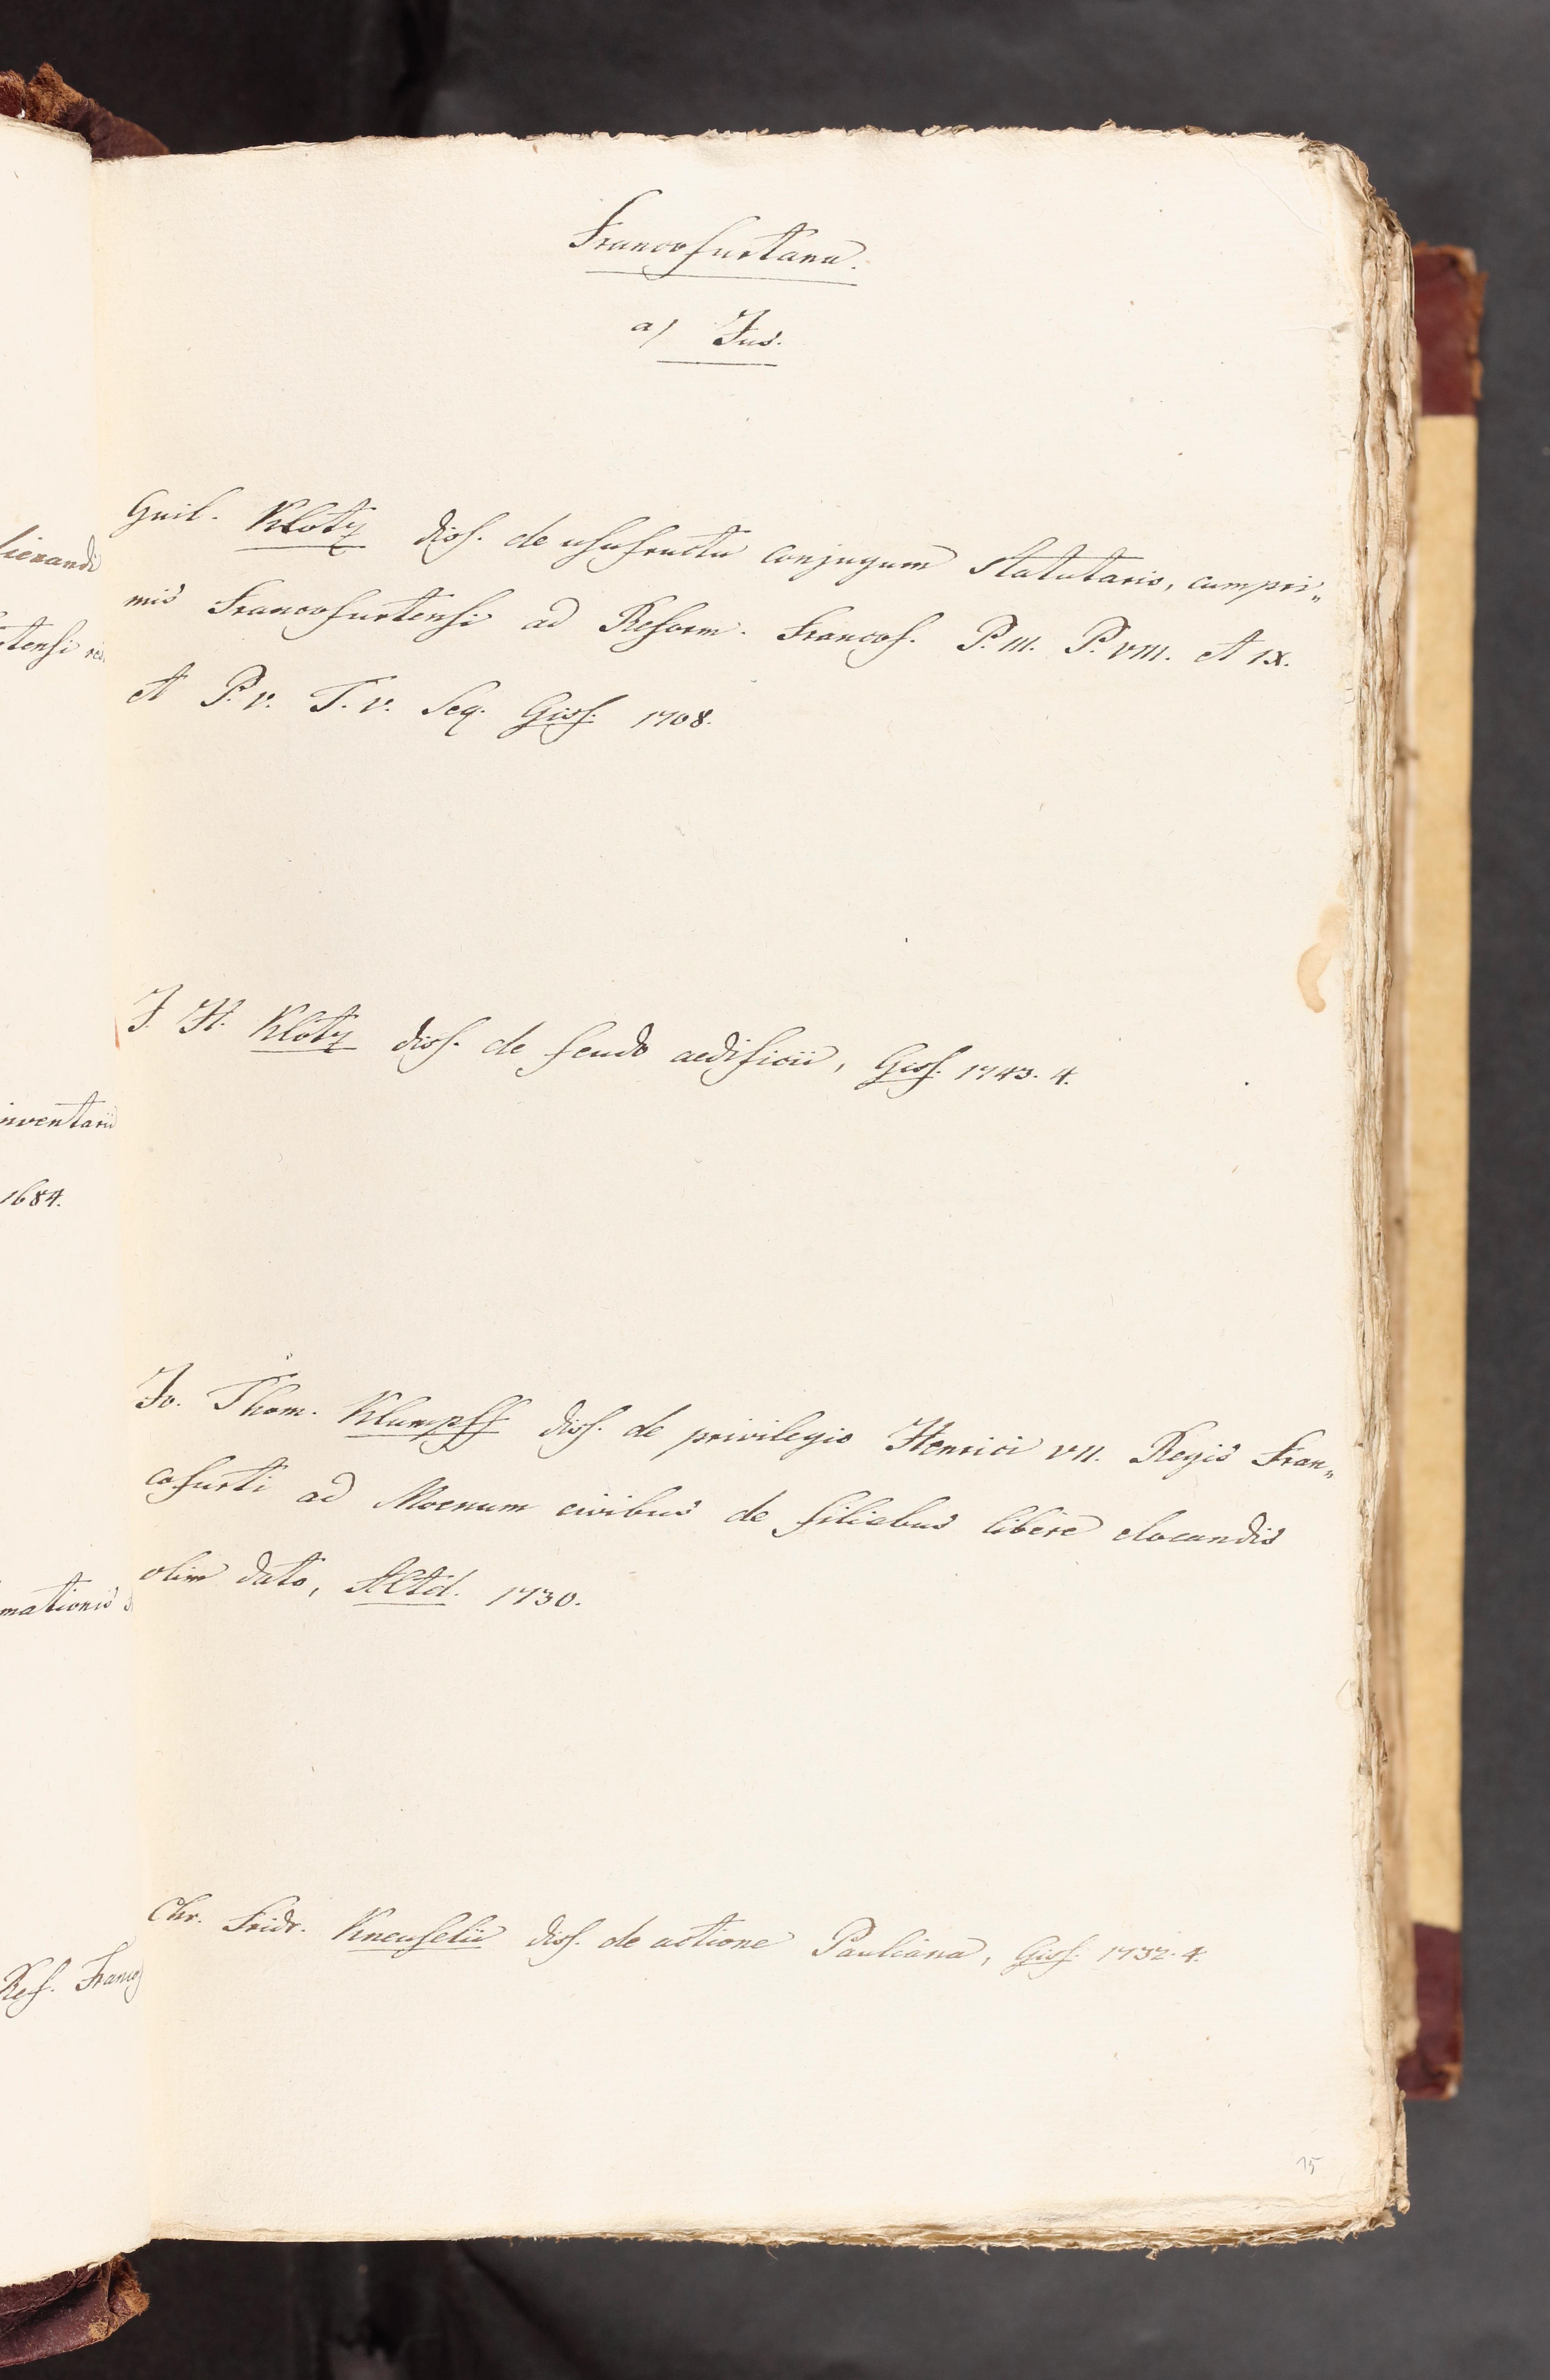 Francofurtana.
a) Jus.
Guil. Klotz diss. de usufructu conjugum statutario, cumpri„
mis Francofurtensi ad Reform. Francof. P. III. P. VIII. et IX.
et P. V. T. V. seq. Giss. 1708.
J. H. Klotz diss. de feudo aedificii, Giss. 1743. 4.
Jo. Thom. Klumpff diss. de privilegio Henrici VII. Regis Fran„
cofurti ad Moenum civibus de filiabus libere elocandis
olim dato, Altd. 1730.
Chr. Fridr. Kneuselii diss. de actione Pauliana, Giss. 1732. 4.
15
lierandi
tensi
inventarii
1684.
mationis
Ref. Francof